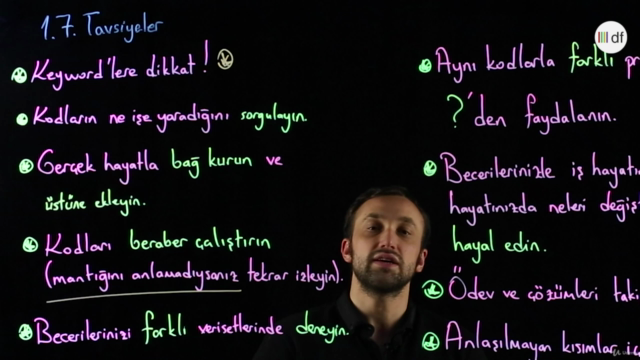 1.7. Tavsiyeler
Keyword'lere dikkat!
Kodların ne işe yaradığını sorgulayın.
Gerçek hayatla bağ kurun ve
üstüne ekleyin.
Kodları beraber çalıştırın
(mantığını anlamadıysanız tekrar izleyin).
Becerilerinizi farklı verisetlerinde deneyin.
df
Aynı kodlarla farklı pr
?'den faydalanın.
Becerilerinizle iş hayatı
hayatınızda neleri değiş
hayal edin.
Ödev ve çözümleri taki
Anlaşılmayan kısımlar